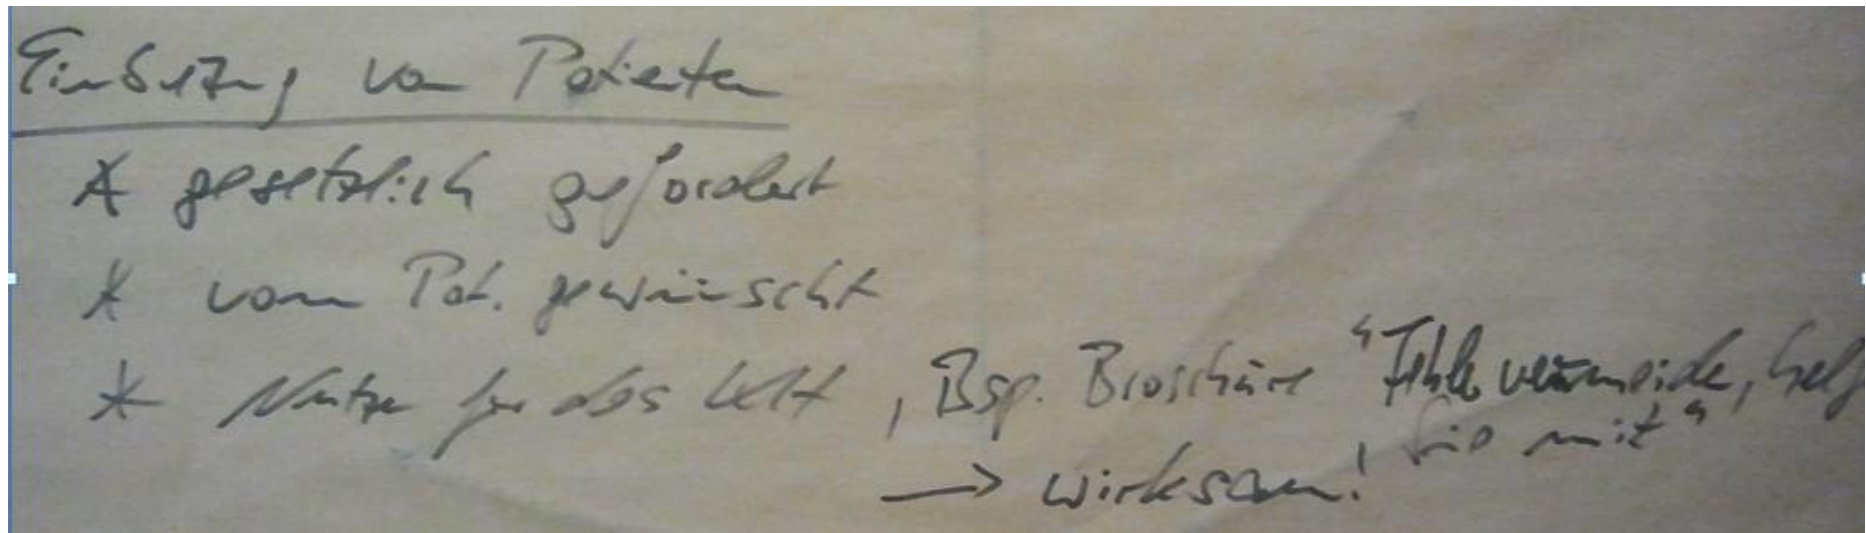 Einbezug von Patienten
* gesetzlich gefordert
* vom Pat. gewünscht
* Nutzen für das , Bsp. Broschüre "Fehler vermeiden, helf
Sie mit"
→ wirksam!